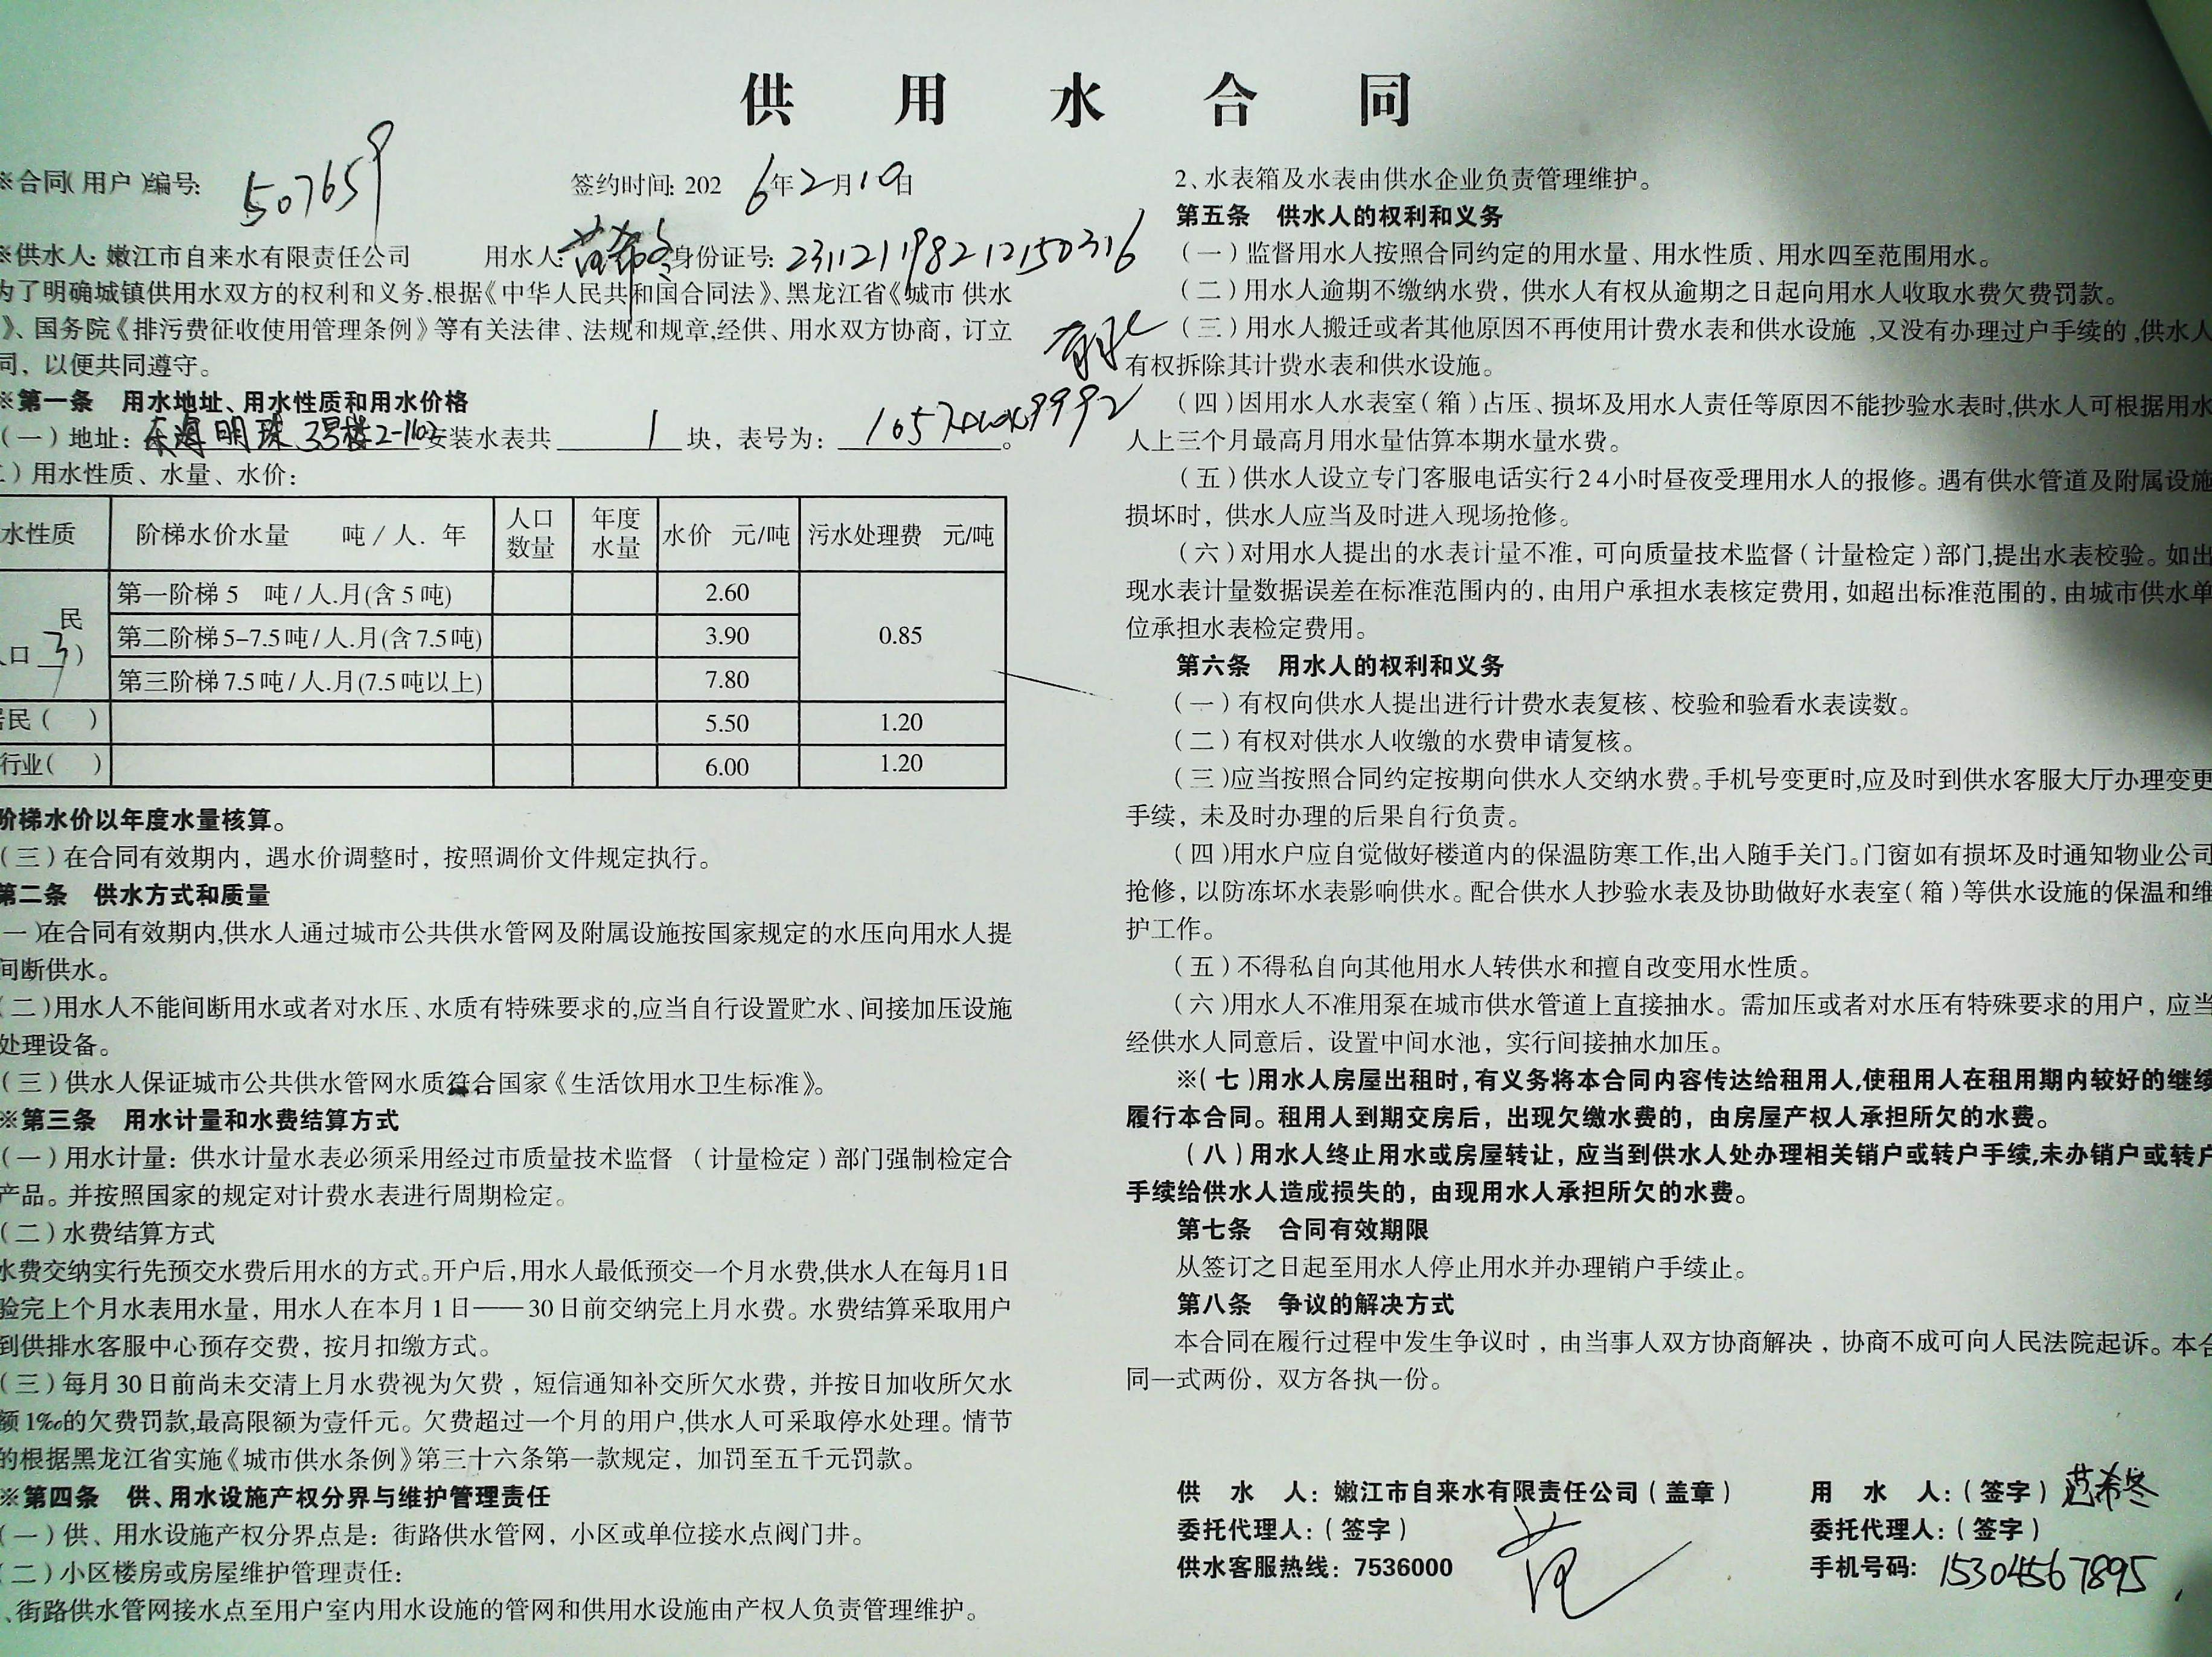 供用水合同
※合同(用户)编号: 507659 签约时间: 2026年2月10日
※供水人: 嫩江市自来水有限责任公司 用水人: 范希冬 身份证号: 231121198212150316
为了明确城镇供用水双方的权利和义务,根据《中华人民共和国合同法》、黑龙江省《城市 供水
》、国务院《排污费征收使用管理条例》等有关法律、法规和规章,经供、用水双方协商, 订立
同, 以便共同遵守。
※第一条 用水地址、用水性质和用水价格
(一)地址: 东海明珠3号楼2-1102 安装水表共 1 块, 表号为: 。
)用水性质、水量、水价:
水性质 阶梯水价水量 吨/人. 年 人口数量 年度水量 水价 元/吨 污水处理费 元/吨
民
口 3 )
第一阶梯 5 吨/人.月(含 5 吨) 2.60
第二阶梯 5-7.5 吨/人.月(含 7.5 吨) 3.90 0.85
第三阶梯 7.5 吨/人.月(7.5 吨以上) 7.80
居民( ) 5.50 1.20
行业( ) 6.00 1.20
阶梯水价以年度水量核算。
(三)在合同有效期内, 遇水价调整时, 按照调价文件规定执行。
第二条 供水方式和质量
一)在合同有效期内,供水人通过城市公共供水管网及附属设施按国家规定的水压向用水人提
间断供水。
(二)用水人不能间断用水或者对水压、水质有特殊要求的,应当自行设置贮水、间接加压设施
处理设备。
(三)供水人保证城市公共供水管网水质符合国家《生活饮用水卫生标准》。
※第三条 用水计量和水费结算方式
(一)用水计量: 供水计量水表必须采用经过市质量技术监督 (计量检定)部门强制检定合
产品。并按照国家的规定对计费水表进行周期检定。
(二)水费结算方式
水费交纳实行先预交水费后用水的方式。开户后,用水人最低预交一个月水费,供水人在每月1日
验完上个月水表用水量, 用水人在本月1日——30日前交纳完上月水费。水费结算采取用户
到供排水客服中心预存交费, 按月扣缴方式。
(三)每月30日前尚未交清上月水费视为欠费, 短信通知补交所欠水费, 并按日加收所欠水
额1‰的欠费罚款,最高限额为壹仟元。欠费超过一个月的用户,供水人可采取停水处理。情节
的根据黑龙江省实施《城市供水条例》第三十六条第一款规定, 加罚至五千元罚款。
※第四条 供、用水设施产权分界与维护管理责任
(一)供、用水设施产权分界点是: 街路供水管网, 小区或单位接水点阀门井。
(二)小区楼房或房屋维护管理责任:
、街路供水管网接水点至用户室内用水设施的管网和供用水设施由产权人负责管理维护。
2、水表箱及水表由供水企业负责管理维护。
第五条 供水人的权利和义务
(一)监督用水人按照合同约定的用水量、用水性质、用水四至范围用水。
(二)用水人逾期不缴纳水费, 供水人有权从逾期之日起向用水人收取水费欠费罚款。
(三)用水人搬迁或者其他原因不再使用计费水表和供水设施 ,又没有办理过户手续的,供水人
有权拆除其计费水表和供水设施。
(四)因用水人水表室(箱)占压、损坏及用水人责任等原因不能抄验水表时,供水人可根据用水
人上三个月最高月用水量估算本期水量水费。
(五)供水人设立专门客服电话实行24小时昼夜受理用水人的报修。遇有供水管道及附属设施
损坏时, 供水人应当及时进入现场抢修。
(六)对用水人提出的水表计量不准, 可向质量技术监督(计量检定)部门,提出水表校验。如出
现水表计量数据误差在标准范围内的, 由用户承担水表核定费用, 如超出标准范围的, 由城市供水单
位承担水表检定费用。
第六条 用水人的权利和义务
(一)有权向供水人提出进行计费水表复核、校验和验看水表读数。
(二)有权对供水人收缴的水费申请复核。
(三)应当按照合同约定按期向供水人交纳水费。手机号变更时,应及时到供水客服大厅办理变更
手续, 未及时办理的后果自行负责。
(四)用水户应自觉做好楼道内的保温防寒工作,出入随手关门。门窗如有损坏及时通知物业公司
抢修, 以防冻坏水表影响供水。配合供水人抄验水表及协助做好水表室(箱)等供水设施的保温和维
护工作。
(五)不得私自向其他用水人转供水和擅自改变用水性质。
(六)用水人不准用泵在城市供水管道上直接抽水。需加压或者对水压有特殊要求的用户, 应当
经供水人同意后, 设置中间水池, 实行间接抽水加压。
※(七)用水人房屋出租时,有义务将本合同内容传达给租用人,使租用人在租用期内较好的继续
履行本合同。租用人到期交房后, 出现欠缴水费的, 由房屋产权人承担所欠的水费。
(八)用水人终止用水或房屋转让, 应当到供水人处办理相关销户或转户手续,未办销户或转户
手续给供水人造成损失的, 由现用水人承担所欠的水费。
第七条 合同有效期限
从签订之日起至用水人停止用水并办理销户手续止。
第八条 争议的解决方式
本合同在履行过程中发生争议时, 由当事人双方协商解决, 协商不成可向人民法院起诉。本合
同一式两份, 双方各执一份。
供 水 人: 嫩江市自来水有限责任公司(盖章) 用 水 人:(签字) 范希冬
委托代理人:(签字) 范 委托代理人:(签字)
供水客服热线: 7536000 手机号码: 15304567895